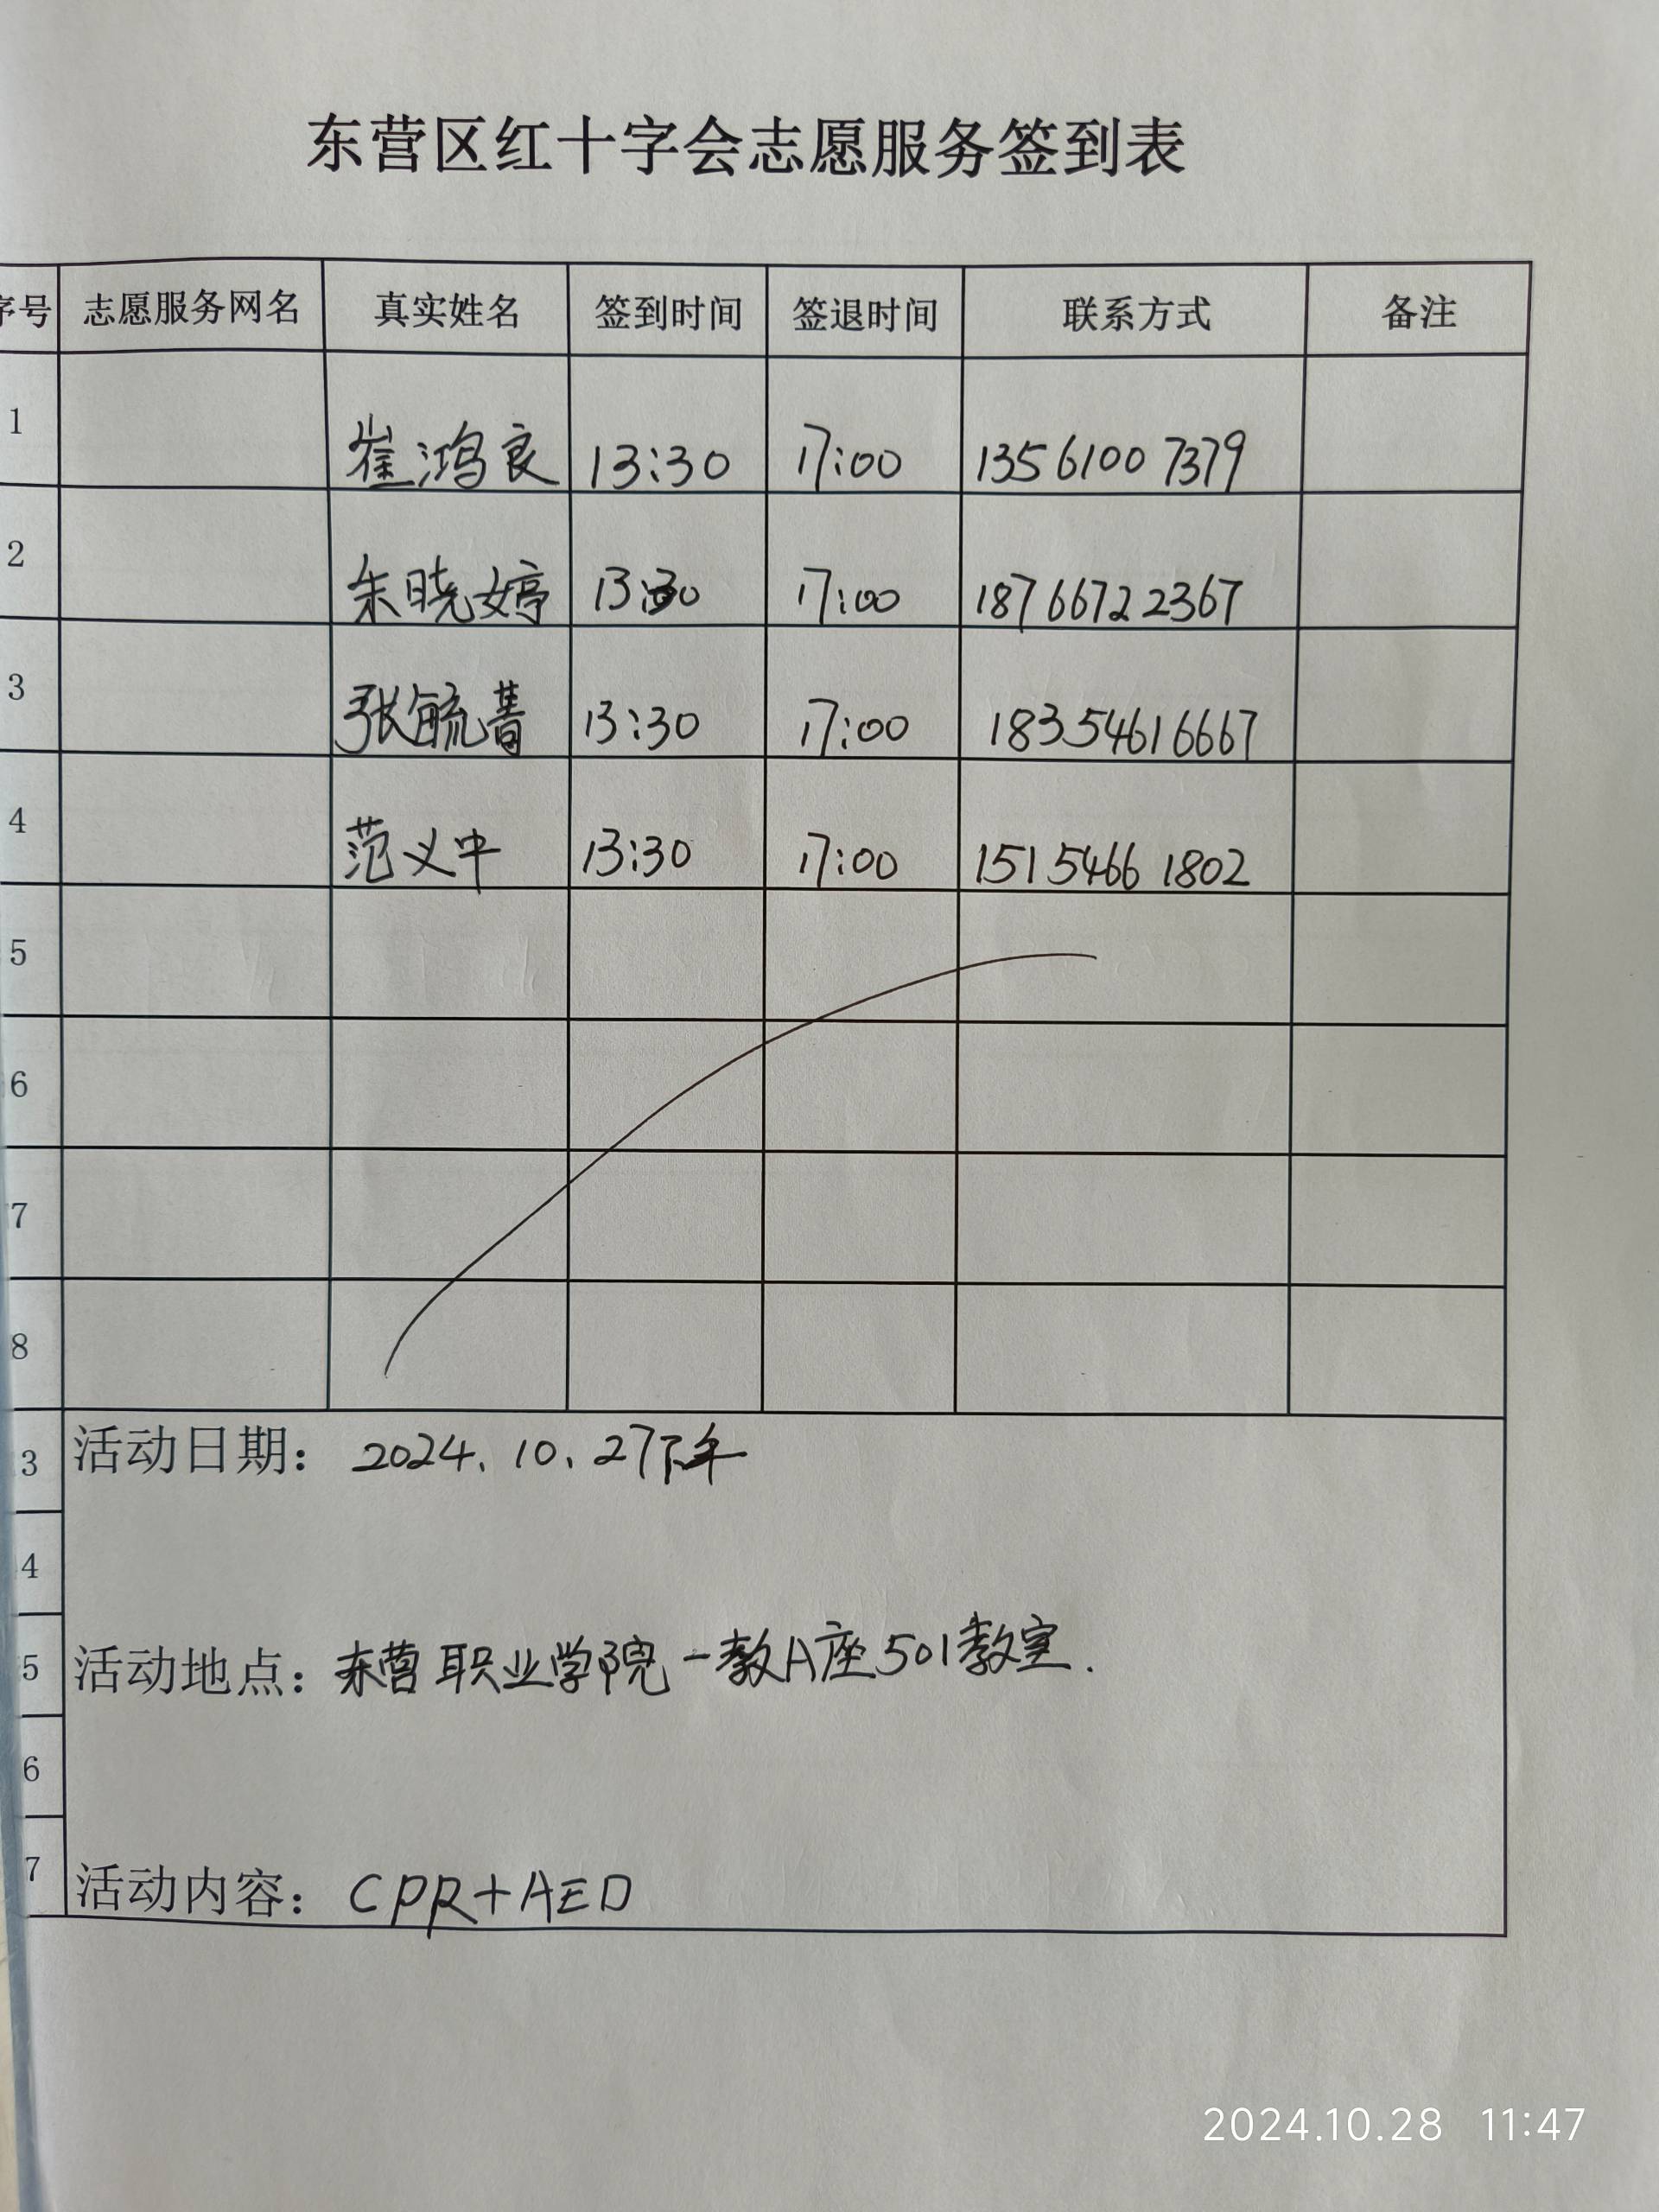 东营区红十字会志愿服务签到表
序号 志愿服务网名 真实姓名 签到时间 签退时间 联系方式 备注
1 崔鸿良 13:30 17:00 13561007379
2 朱晓婷 13:30 17:00 18766722367
3 张毓菁 13:30 17:00 18354616667
4 范义中 13:30 17:00 15154661802
5
6
7
8
3 活动日期: 2024.10.27下午
4
5 活动地点: 东营职业学院一教A座501教室.
6
7 活动内容: CPR+AED
2024.10.28 11:47